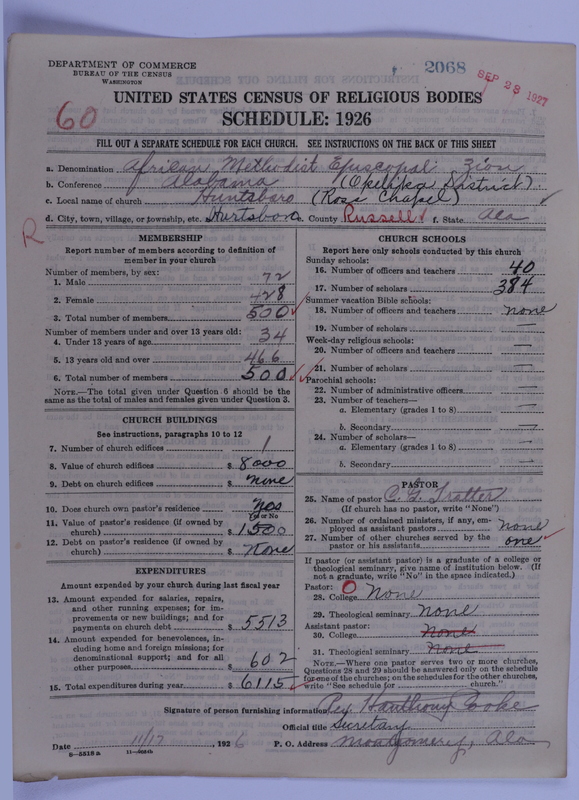 DEPARTMENT OF COMMERCE
BUREAU OF THE CENSUS
WASHINGTON
2068
SEP 28 1927
60
UNITED STATES CENSUS OF RELIGIOUS BODIES
SCHEDULE: 1926
FILL OUT A SEPARATE SCHEDULE FOR EACH CHURCH. SEE INSTRUCTIONS ON THE BACK OF THIS SHEET
a. Denomination African Methodist Episcopal Zion
b. Conference Alabama (Opelika District)
c. Local name of church Huntsboro (Rose Chapel)
d. City, town, village, or township, etc. Hurtsboro e. County Russell f. State Ala
R
MEMBERSHIP
Report number of members according to definition of
member in your church
Number of members, by sex:
1. Male 72
2. Female 428
3. Total number of members 500
Number of members under and over 13 years old:
4. Under 13 years of age 34
5. 13 years old and over 466
6. Total number of members 500
NOTE.—The total given under Question 6 should be the
same as the total of males and females given under Question 3.
CHURCH BUILDINGS
See instructions, paragraphs 10 to 12
7. Number of church edifices 1
8. Value of church edifices $ 8000
9. Debt on church edifices $ none
10. Does church own pastor's residence
Yes or No
11. Value of pastor's residence (if owned by
church) $ 1500
12. Debt on pastor's residence (if owned by
church) $ none
EXPENDITURES
Amount expended by your church during last fiscal year
13. Amount expended for salaries, repairs,
and other running expenses; for im-
provements or new buildings; and for
payments on church debt $ 5513
14. Amount expended for benevolences, in-
cluding home and foreign missions; for
denominational support; and for all
other purposes $ 602
15. Total expenditures during year $ 6115
CHURCH SCHOOLS
Report here only schools conducted by this church
Sunday schools:
16. Number of officers and teachers 40
17. Number of scholars 384
Summer vacation Bible schools:
18. Number of officers and teachers none
19. Number of scholars —
Week-day religious schools:
20. Number of officers and teachers —
21. Number of scholars —
Parochial schools:
22. Number of administrative officers —
23. Number of teachers—
a. Elementary (grades 1 to 8) —
b. Secondary —
24. Number of scholars—
a. Elementary (grades 1 to 8) —
b. Secondary —
PASTOR
25. Name of pastor C. G. Tratter
(If church has no pastor, write "None")
26. Number of ordained ministers, if any, em-
ployed as assistant pastors none
27. Number of other churches served by the
pastor or his assistants one
If pastor (or assistant pastor) is a graduate of a college or
theological seminary, give name of institution below. (If
not a graduate, write "No" in the space indicated.)
Pastor: O
28. College None
29. Theological seminary none
Assistant pastor:
30. College None
31. Theological seminary None
NOTE.—Where one pastor serves two or more churches,
Questions 28 and 29 should be answered only on the schedule
for one of the churches; on the schedules for the other churches,
write "See schedule for church."
Signature of person furnishing information Cooke
Official title Secretary
Date 11/17, 1926 P. O. Address Montgomery, Ala
8-5518a 11-